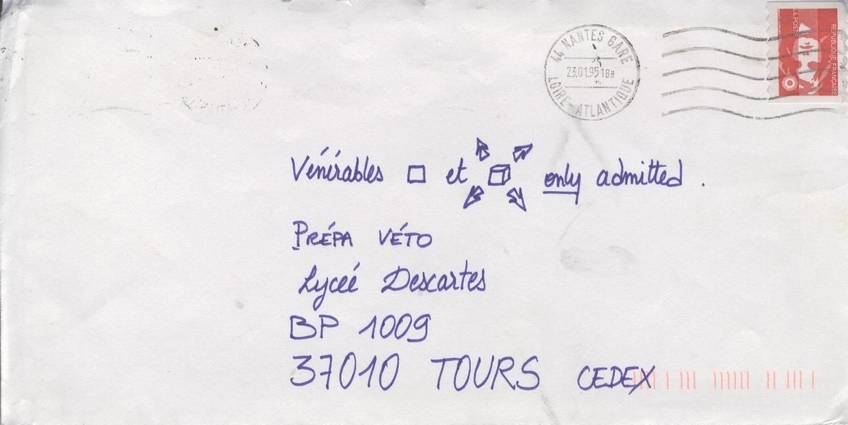 44 NANTES GARE
23.01.95 18H
LOIRE-ATLANTIQUE
LA POSTE
REPUBLIQUE FRANÇAISE
Vénérables □ et only admitted .
PRÉPA VÉTO
Lyceé Descartes
BP 1009
37010 TOURS CEDEX